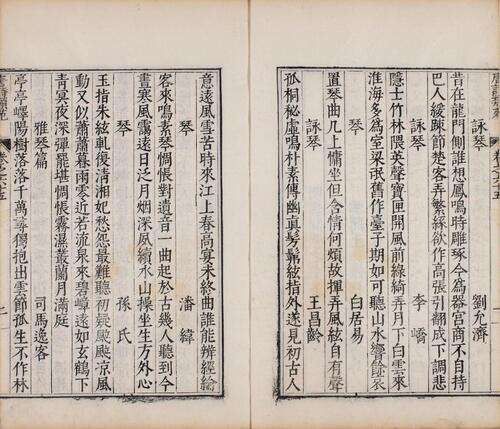 詠琴 劉允濟
昔在龍門側誰想鳳鳴時雕琢今爲器宮商不自持
巴人緩疎節楚客弄繁絲欲作高張引翻成下調悲
詠琴 李嶠
隱士竹林隈英聲寶匣開風前綠綺弄月下白雲來
淮海多爲室梁岷舊作臺子期如可聽山水響餘哀
琴 白居易
置琴曲几上慵坐但含情何煩故揮弄風絃自有聲
詠琴 王昌齡
孤桐秘虛鳴朴素傳幽真髣髴絃指外遂見初古人
意遠風雪苦時來江上春高宴未終曲誰能辨經綸
琴 潘緯
客來鳴素琴惆悵對遺音一曲起於古幾人聽到今
晝寒風靄遠日泛月烟深夙續水山操坐生方外心
琴 孫氏
玉指朱絃軋復清湘妃愁怨最難聽初疑颯颯凉風
動又似蕭蕭暮雨零近若流泉來碧嶂遠如玄鶴下
青冥夜深彈罷堪惆悵霧濕叢蘭月滿庭
雅琴篇 司馬逸客
亭亭嶧陽樹落落千萬尋獨抱出雲節孤生不作林